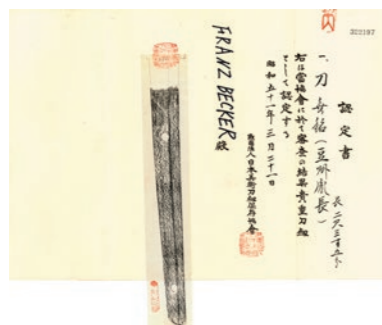 322197
認定書
一、刀 無銘
長 二尺三寸五分
右は當協會に於て審査の結果貴重刀剣
として認定する
昭和五十一年三月二十一日
財団法人日本美術刀剣保存協會
FRANZ BECKER 殿